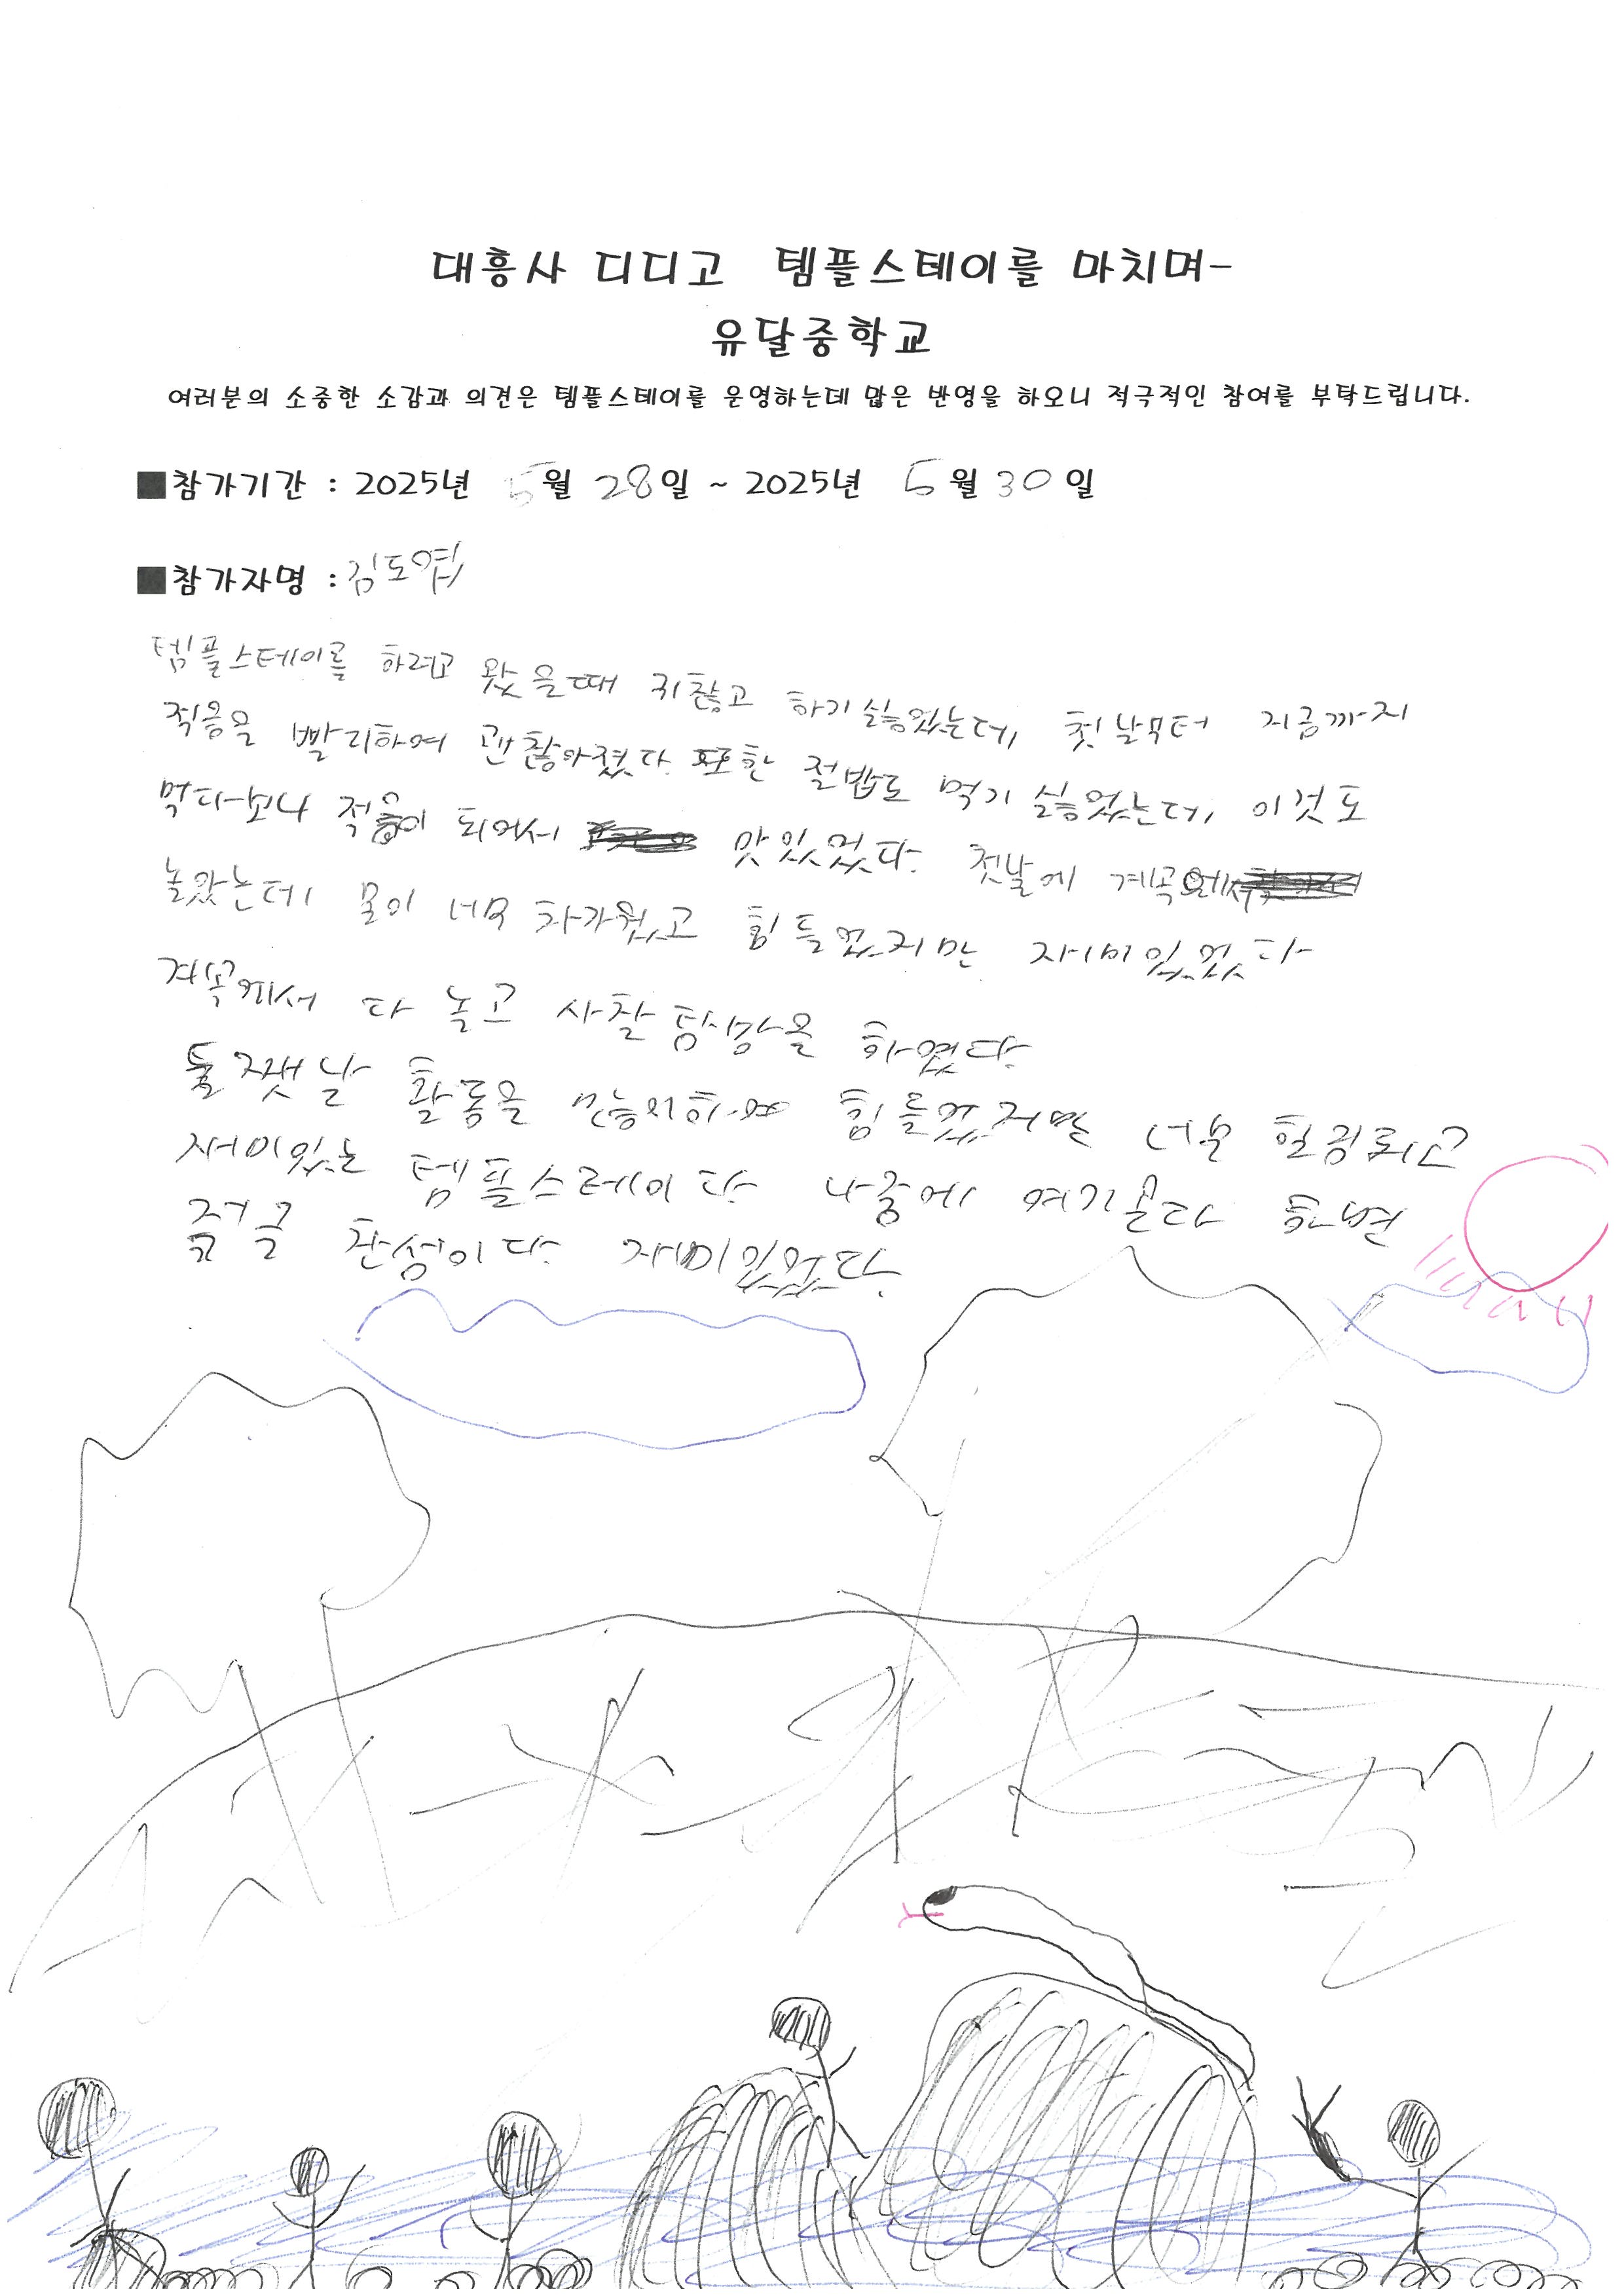 대흥사 디디고 템플스테이를 마치며-
유달중학교
여러분의 소중한 소감과 의견은 템플스테이를 운영하는데 많은 반영을 하오니 적극적인 참여를 부탁드립니다.
■참가기간 : 2025년 5월 28일 ~ 2025년 5월 30일
■참가자명 : 김도엽
템플스테이를 하려고 왔을때 귀찮고 하기싫었는데, 첫날부터 지금까지
적응을 빨리하여 괜찮아졌다. 또한 절밥도 먹기 싫었는데, 이것도
먹다보니 적응이 되어서 맛있었다. 첫날에 계곡에서
놀았는데 물이 너무 차가웠고 힘들었지만 재미있었다
계곡에서 다 놀고 사찰탐방을 하였다.
둘쨋날 활동을 힘들었지만 너무 힐링되고
재미있는 템플스테이다. 나중에 여기온다 한번
찬성이다. 재미있었다.